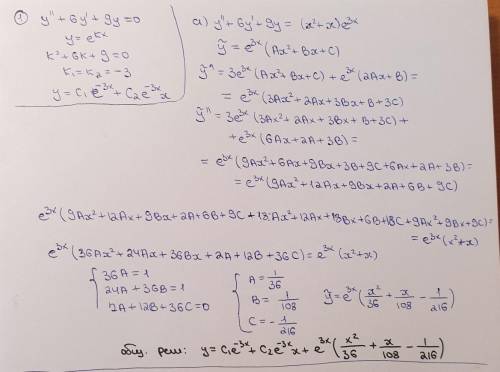 ① y'' + 6y' + 9y = 0
y = e^{kx}
k² + 6k + 9 = 0
k₁ = k₂ = -3
y = C₁ e^{-3x} + C₂ e^{-3x} x
a) y'' + 6y' + 9y = (x² + x) e^{3x}
ỹ = e^{3x} (Ax² + Bx + C)
ỹ' = 3e^{3x} (Ax² + Bx + C) + e^{3x} (2Ax + B) =
= e^{3x} (3Ax² + 2Ax + 3Bx + B + 3C)
ỹ'' = 3e^{3x} (3Ax² + 2Ax + 3Bx + B + 3C) +
+ e^{3x} (6Ax + 2A + 3B) =
= e^{3x} (9Ax² + 6Ax + 9Bx + 3B + 9C + 6Ax + 2A + 3B) =
= e^{3x} (9Ax² + 12Ax + 9Bx + 2A + 6B + 9C)
e^{3x} (9Ax² + 12Ax + 9Bx + 2A + 6B + 9C + 18Ax² + 12Ax + 18Bx + 6B + 18C + 9Ax² + 9Bx + 9C) =
= e^{3x} (x² + x)
e^{3x} (36Ax² + 24Ax + 36Bx + 2A + 12B + 36C) = e^{3x} (x² + x)
36A = 1
24A + 36B = 1
2A + 12B + 36C = 0
A = 1/36
B = 1/108
C = -1/216
ỹ = e^{3x} (x²/36 + x/108 - 1/216)
общ. реш: y = C₁e^{-3x} + C₂e^{-3x} x + e^{3x} (x²/36 + x/108 - 1/216)